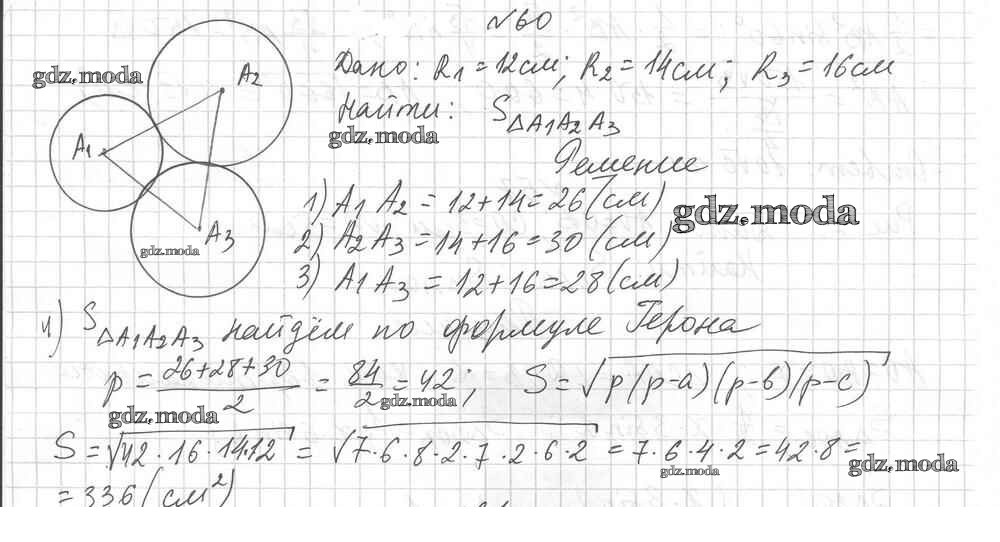 №60
gdz.moda
A2
Дано: R1 = 12см; R2 = 14см; R3 = 16см
Найти: S△A1A2A3
gdz.moda
A1
Решение
1) A1A2 = 12+14 = 26 (см)
gdz.moda
A3
2) A2A3 = 14+16 = 30 (см)
gdz.moda
3) A1A3 = 12+16 = 28 (см)
4) S△A1A2A3 найдём по формуле Герона
p = (26+28+30)/2 = 84/2 = 42; S = √p(p-a)(p-b)(p-c)
gdz.moda
gdz.moda
S = √42·16·14·12 = √7·6·8·2·7·2·6·2 = 7·6·4·2 = 42·8 =
gdz.moda
gdz.moda
= 336 (см²)